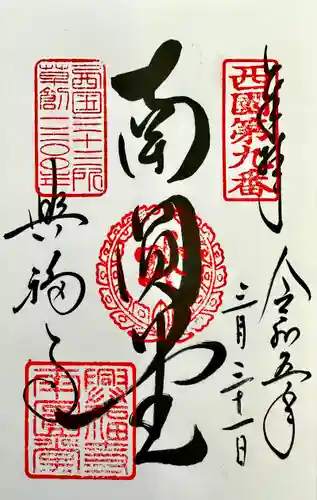 奉拝
令和五年
三月三十一日
西国第九番
南圓堂
西国三十三所
草創一三〇〇年
興福寺
興福寺
南円堂